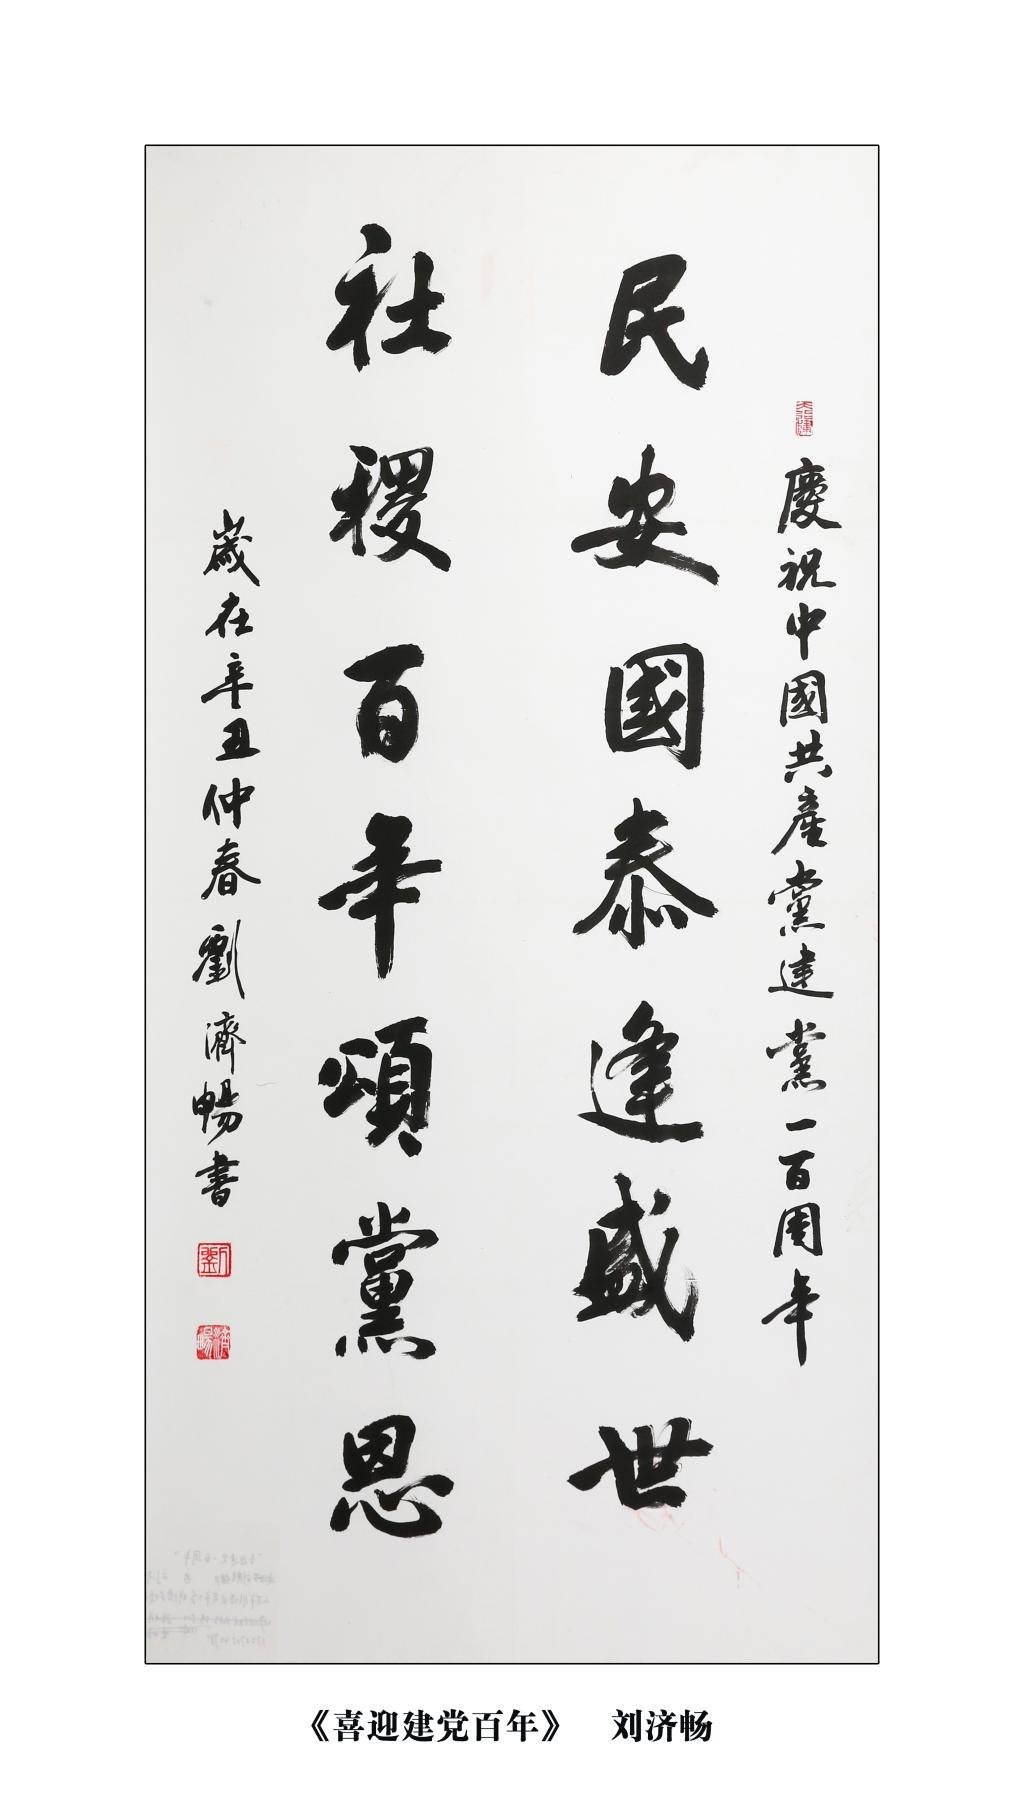 慶祝中國共產黨建黨一百周年
民安國泰逢盛世
社稷百年頌黨恩
歲在辛丑仲春劉濟暢書
劉
濟暢
《喜迎建党百年》 刘济畅